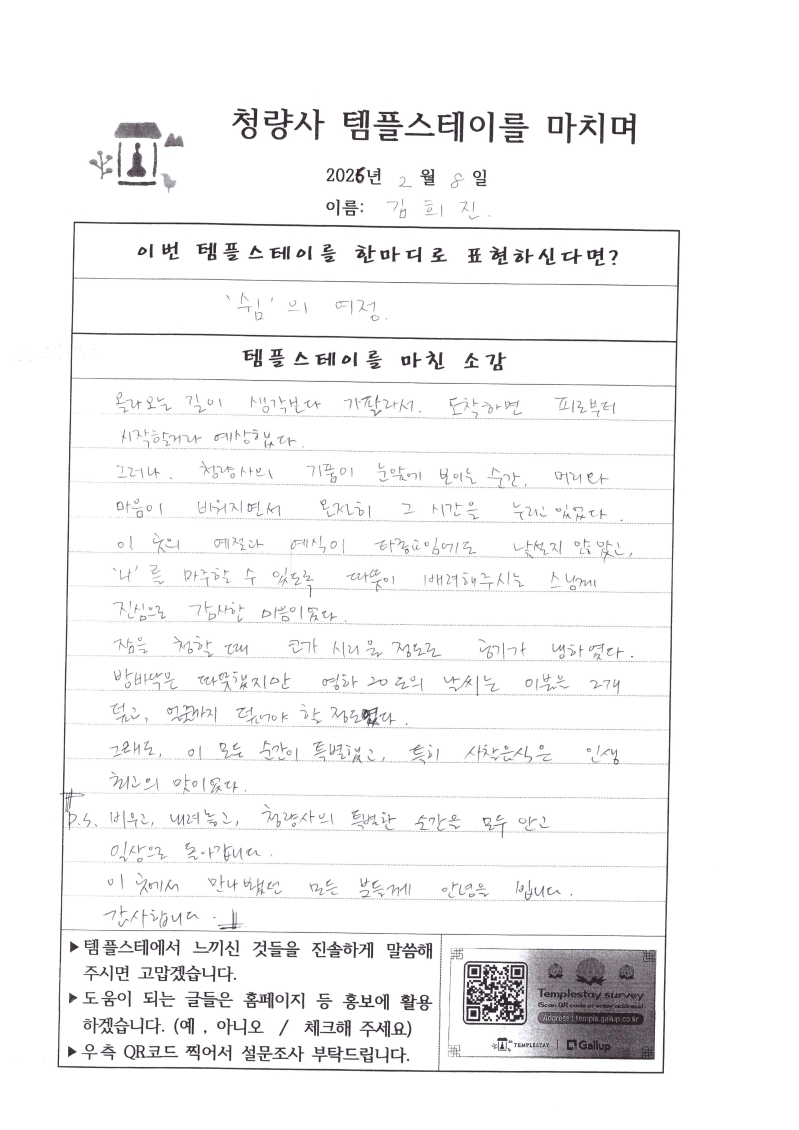 청량사 템플스테이를 마치며
2026년 2월 8일
이름: 김희진.
이번 템플스테이를 한마디로 표현하신다면?
'쉼'의 여정.
템플스테이를 마친 소감
올라오는 길이 생각보다 가팔라서. 도착하면 피로부터
시작할거라 예상했다.
그러나. 청량사의 기품이 눈앞에 보이는 순간, 머리와
마음이 비워지면서 온전히 그 시간을 누리고 있었다.
이 곳의 예절과 예식이 타종교임에도 낯설지 않았고,
'나'를 마주할 수 있도록 따뜻이 배려해주시는 스님께
진심으로 감사한 마음이었다.
잠을 청할 때 코가 시리울 정도로 공기가 냉하였다.
방바닥은 따뜻했지만 영하 20도의 날씨는 이불은 2개
덮고, 얼굴까지 덮어야 할 정도였다.
그래도, 이 모든 순간이 특별했고, 특히 사찰음식은 인생
최고의 맛이었다.
P.S. 비우고, 내려놓고, 청량사의 특별한 순간을 모두 안고
일상으로 돌아갑니다.
이 곳에서 만나뵀던 모든 분들께 안녕을 빕니다.
감사합니다.
▶템플스테에서 느끼신 것들을 진솔하게 말씀해
주시면 고맙겠습니다.
▶도움이 되는 글들은 홈페이지 등 홍보에 활용
하겠습니다. (예 , 아니오 / 체크해 주세요)
▶우측 QR코드 찍어서 설문조사 부탁드립니다.
Templestay survey
(Scan QR code or enter address)
Address : temple.gallup.co.kr
TEMPLESTAY | Gallup